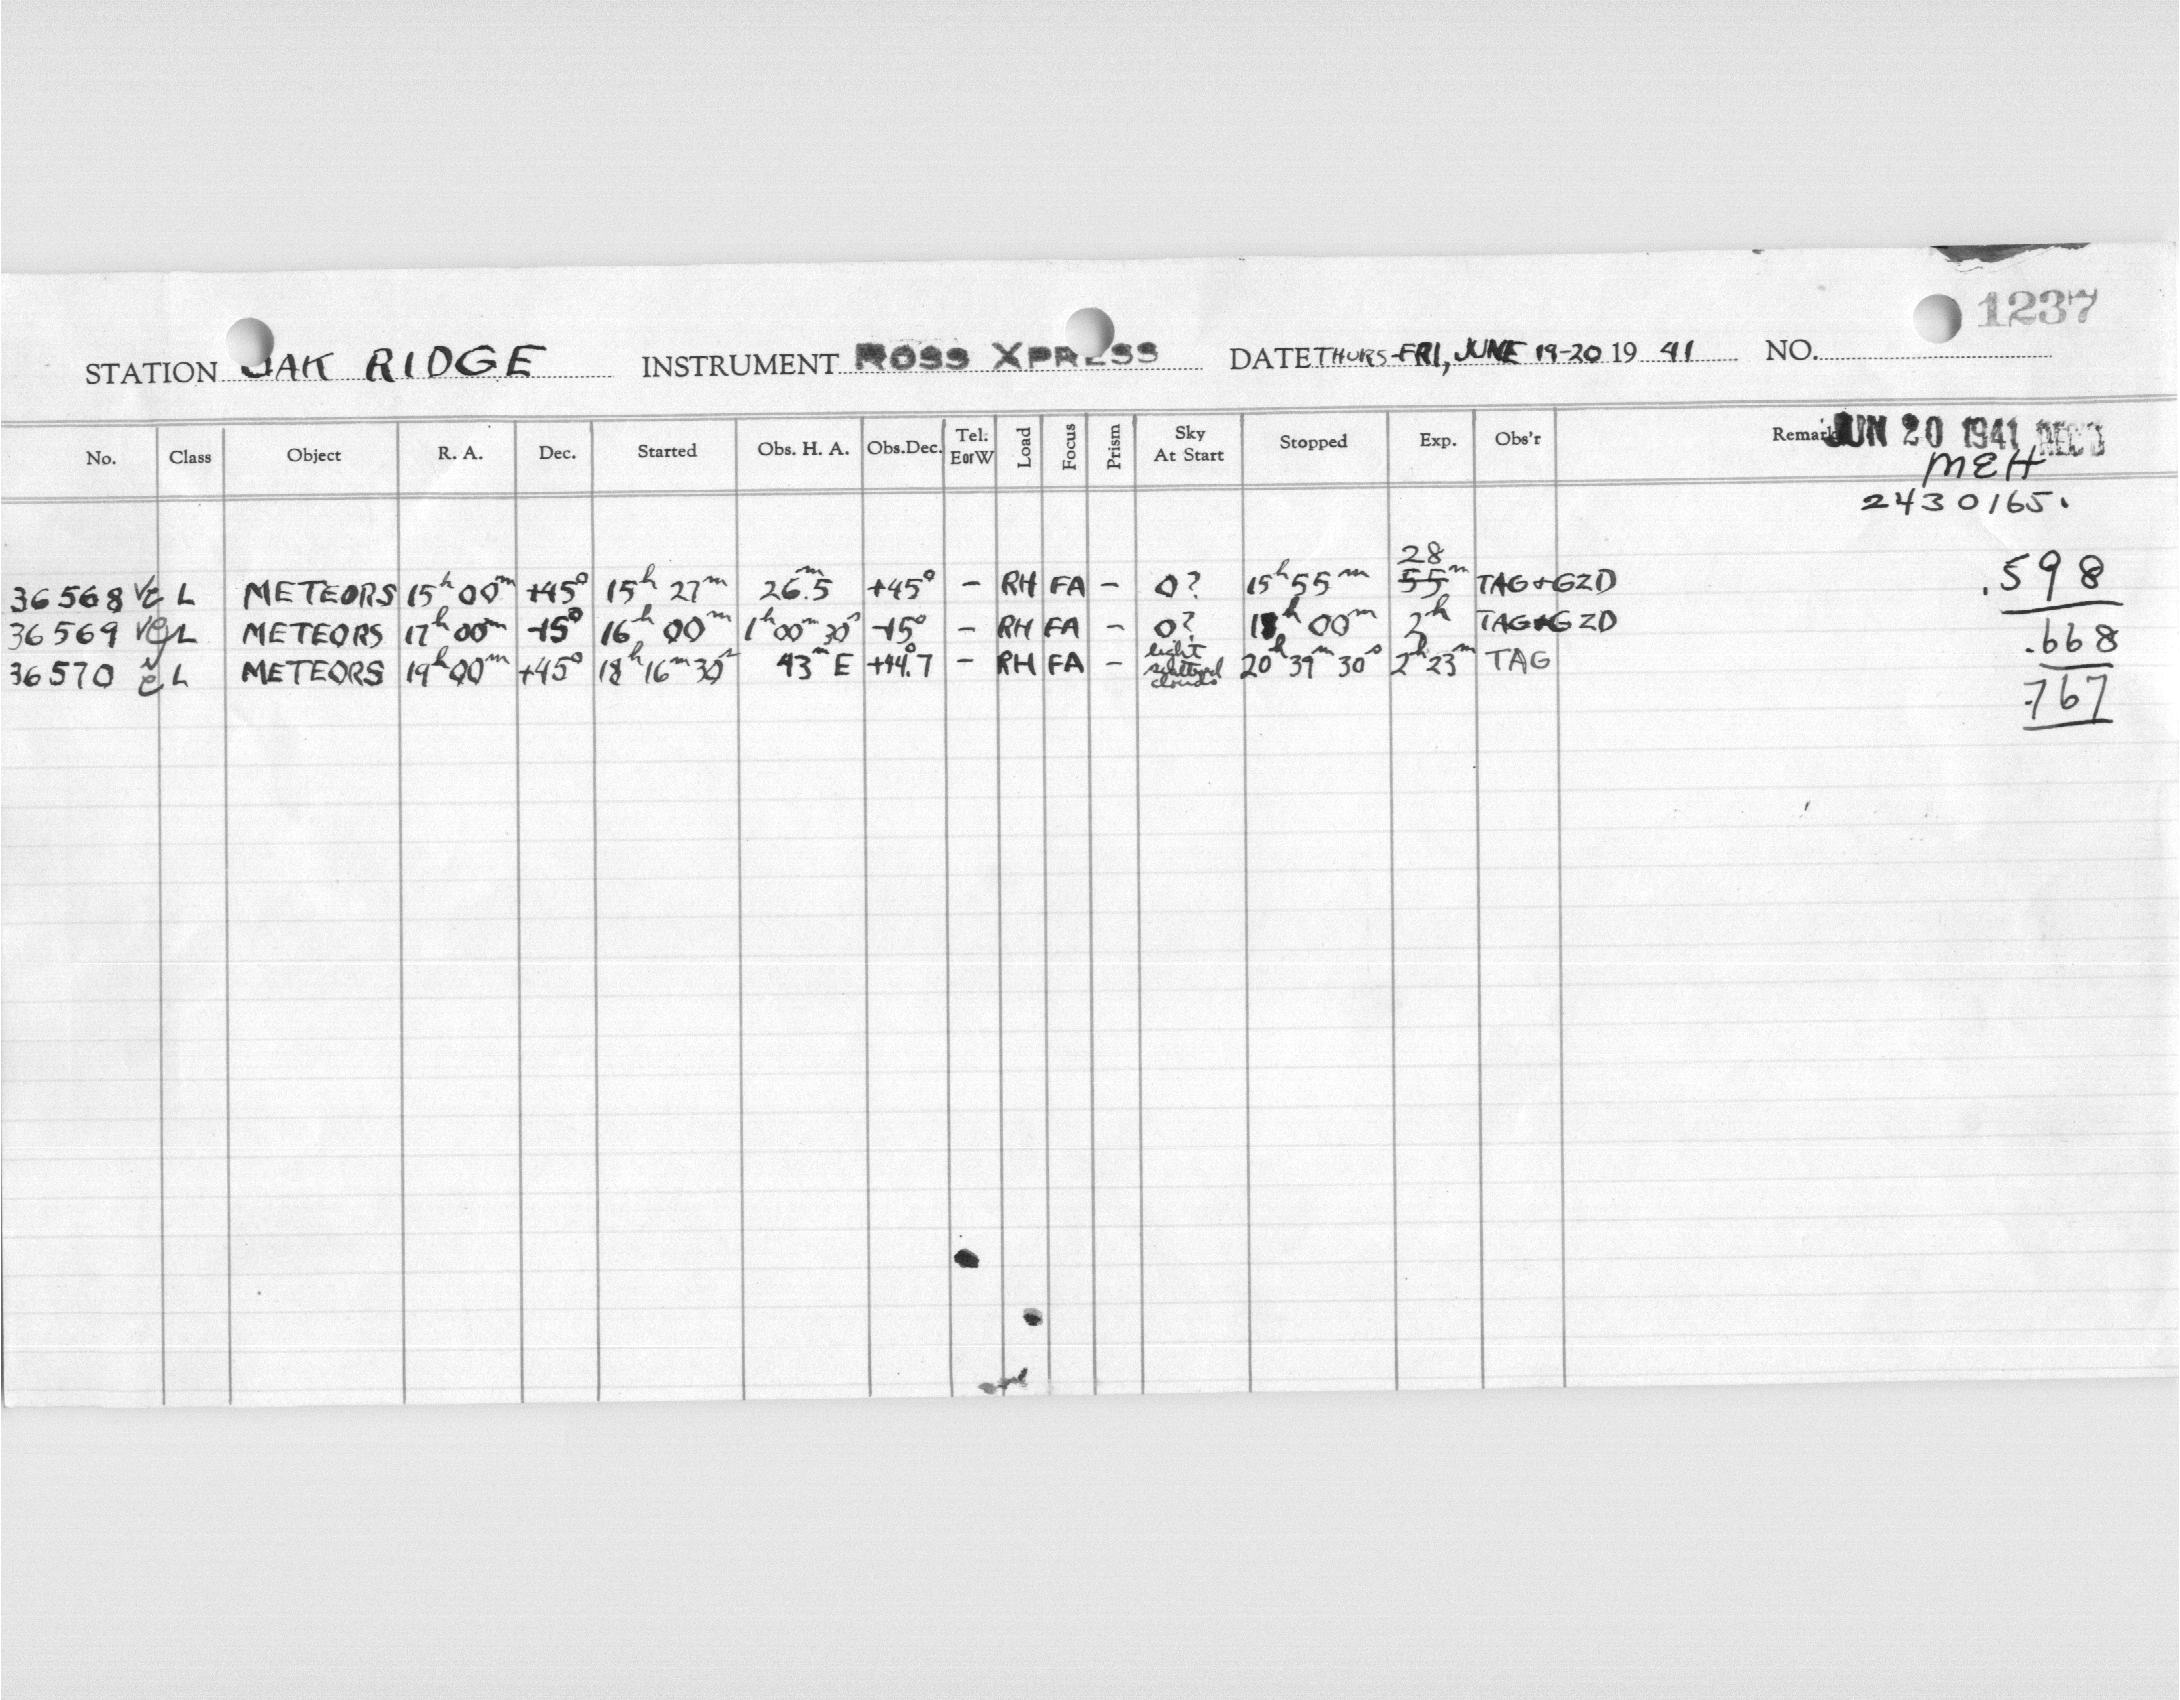 1237
STATION OAK RIDGE INSTRUMENT ROSS XPRESS DATE THURS-FRI, JUNE 19-20 19 41 NO.
No. Class Object R. A. Dec. Started Obs. H. A. Obs.Dec. Tel. EorW Load Focus Prism Sky At Start Stopped Exp. Obs'r Remark JUN 20 1941 REC'D
MEH
2430165.
28
36568 ve L METEORS 15h 00m +45° 15h 27m 26m.5 +45° - RH FA - 0? 15h 55m 55m TAG + GZD .598
36569 veg L METEORS 17h 00m +15° 16h 00m 1h 00m 30s +15° - RH FA - 0? 18h 00m 2h TAG + GZD .668
36570 L METEORS 19h 00m +45° 18h 16m 30s 43m E +44°.7 - RH FA - light scattered clouds 20h 39m 30s 2h 23m TAG .767